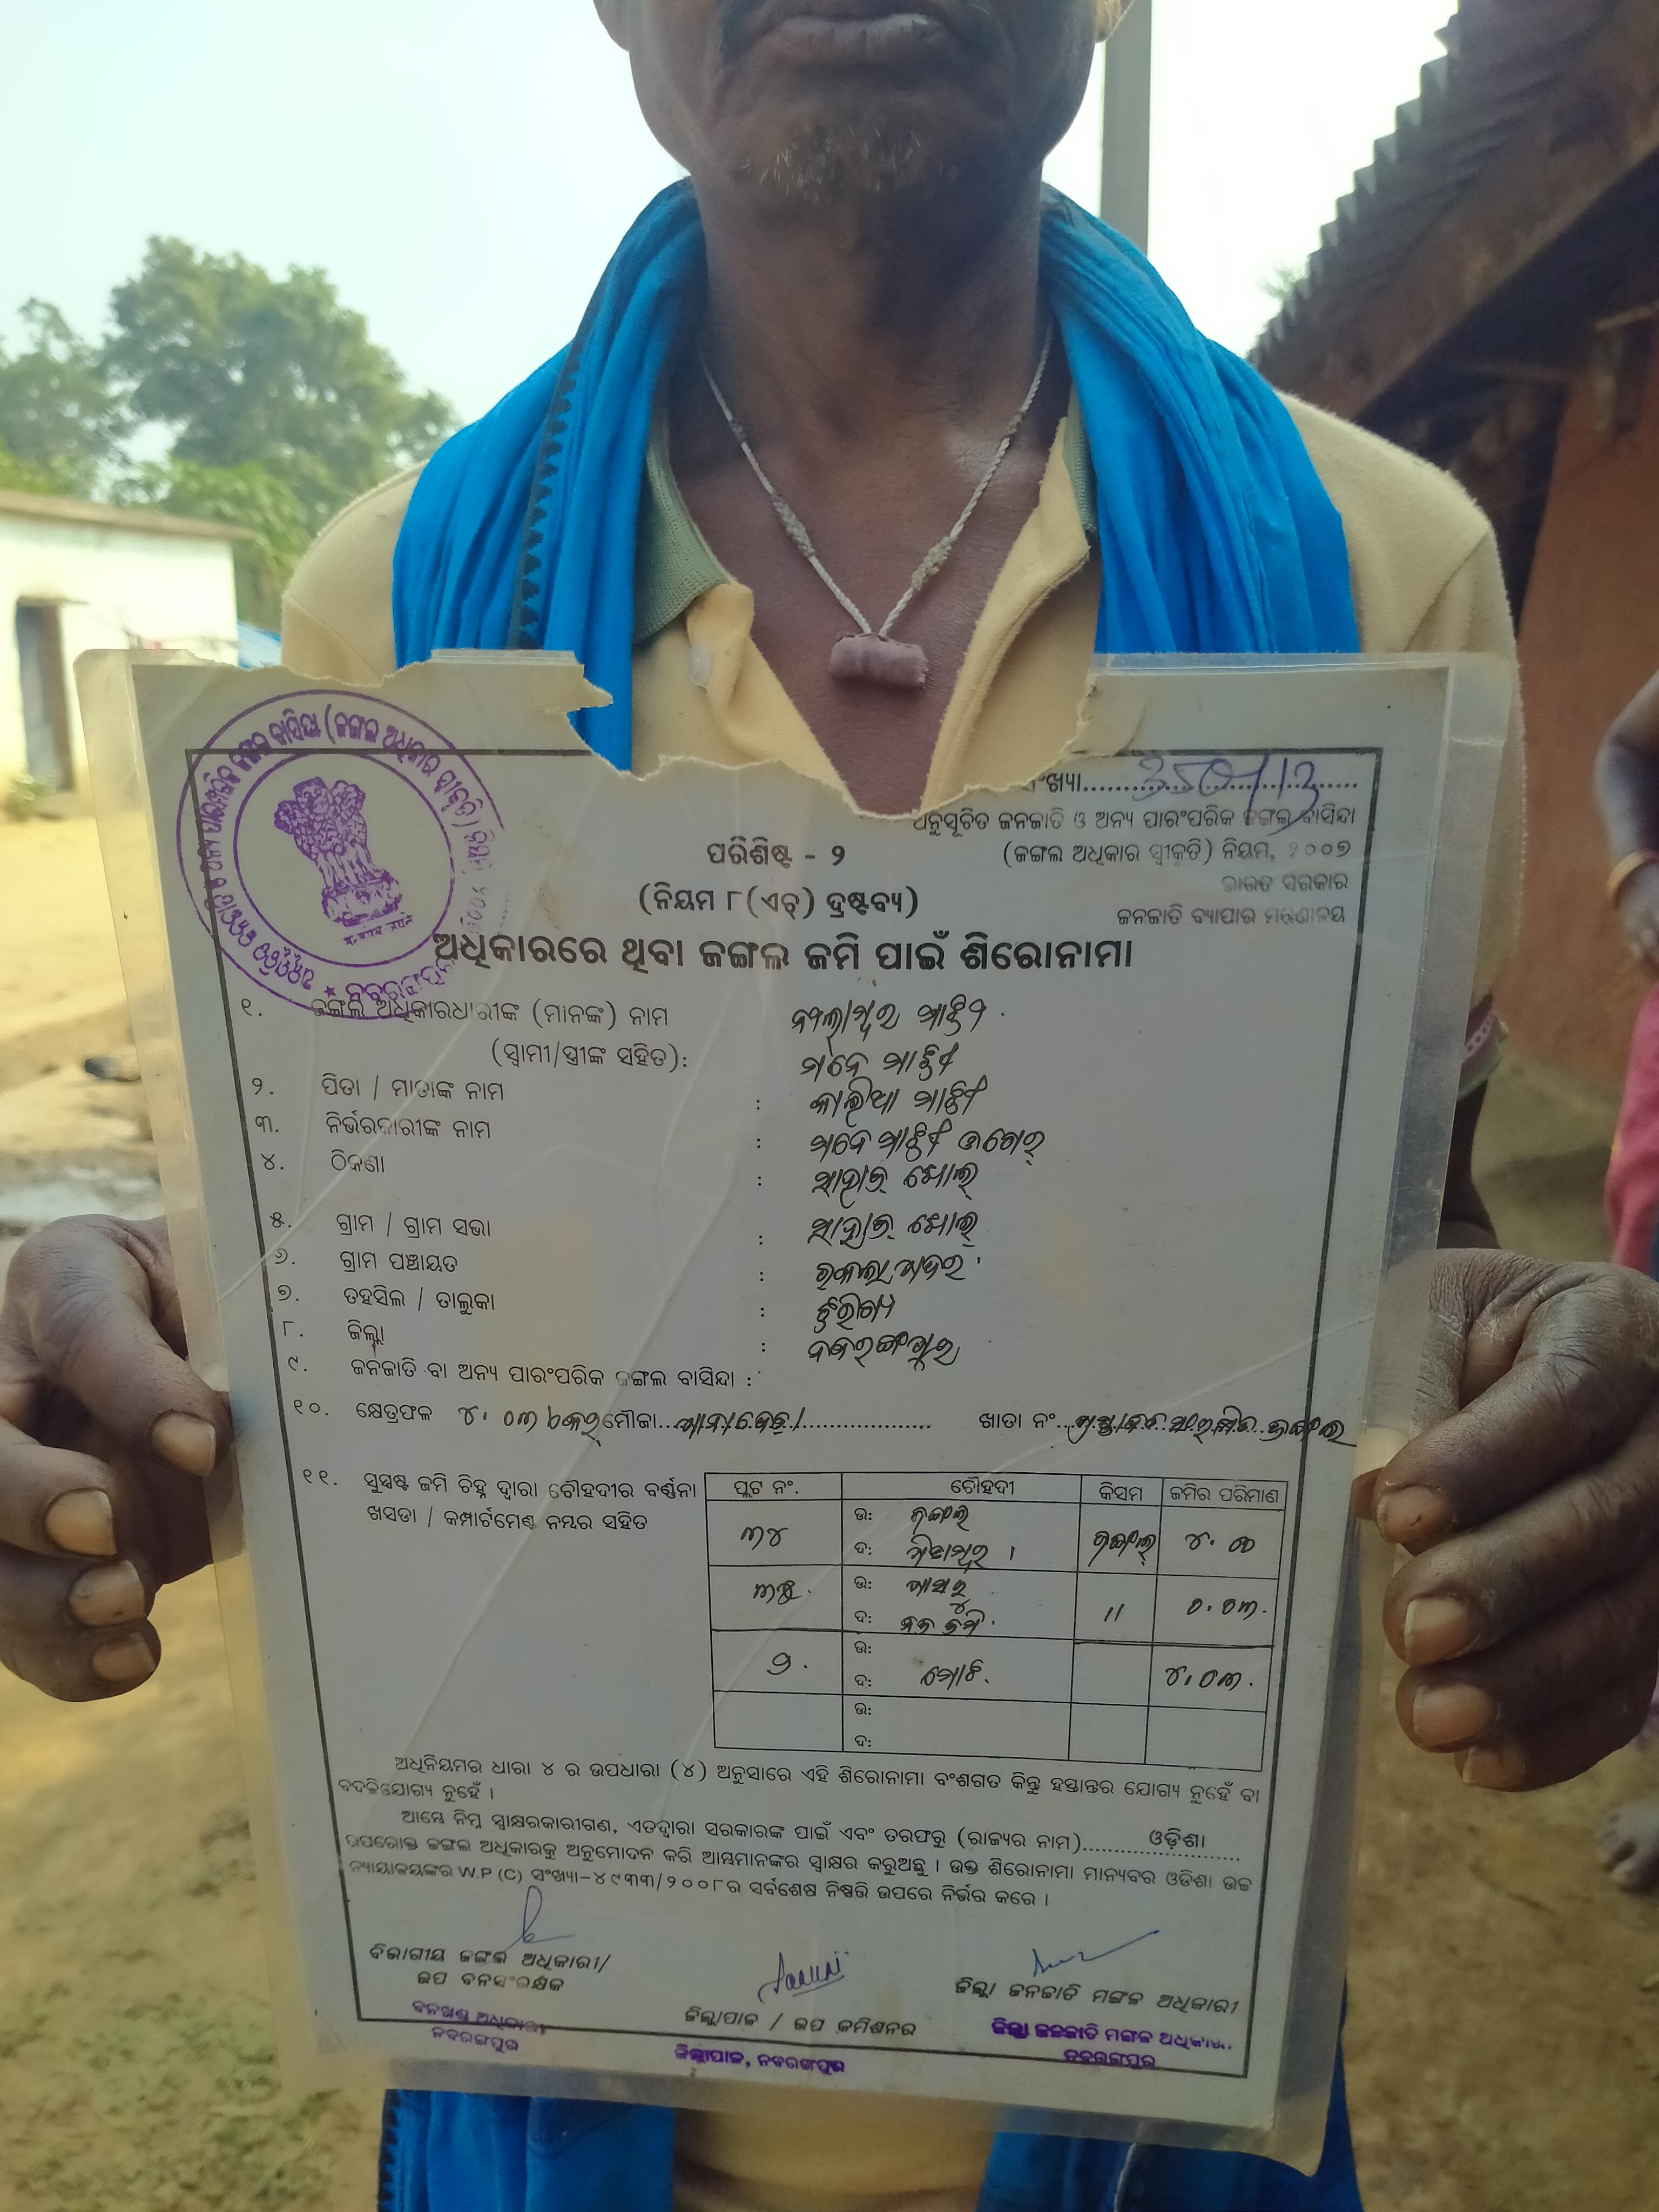 ସଂଖ୍ୟା
ଅନୁସୂଚିତ ଜନଜାତି ଓ ଅନ୍ୟ ପାରଂପରିକ ଜଙ୍ଗଲ ବାସିନ୍ଦା
(ଜଙ୍ଗଲ ଅଧିକାର ସ୍ୱୀକୃତି) ନିୟମ, ୨୦୦୭
ଭାରତ ସରକାର
ଜନଜାତି ବ୍ୟାପାର ମନ୍ତ୍ରଣାଳୟ
ପରିଶିଷ୍ଟ - ୨
(ନିୟମ ୮(ଏଚ୍) ଦ୍ରଷ୍ଟବ୍ୟ)
ଅଧିକାରରେ ଥିବା ଜଙ୍ଗଲ ଜମି ପାଇଁ ଶିରୋନାମା
୧. ଜଙ୍ଗଲ ଅଧିକାରଧାରୀଙ୍କ (ମାନଙ୍କ) ନାମ ମାଝି
(ସ୍ୱାମୀ/ସ୍ତ୍ରୀଙ୍କ ସହିତ): ମନେ ମାଝି
୨. ପିତା / ମାତାଙ୍କ ନାମ : କାଲିଆ ମାଝି
୩. ନିର୍ଭରକାରୀଙ୍କ ନାମ : ମନେ ମାଝି
୪. ଠିକଣା :
୫. ଗ୍ରାମ / ଗ୍ରାମ ସଭା :
୬. ଗ୍ରାମ ପଞ୍ଚାୟତ :
୭. ତହସିଲ / ତାଲୁକା : ଝରିଗାଁ
୮. ଜିଲ୍ଲା : ନବରଙ୍ଗପୁର
୯. ଜନଜାତି ବା ଅନ୍ୟ ପାରଂପରିକ ଜଙ୍ଗଲ ବାସିନ୍ଦା :
୧୦. କ୍ଷେତ୍ରଫଳ ୪.୦୩ ମୌଜା ଖାତା ନଂ. ଜଙ୍ଗଲ
୧୧. ସୁସ୍ପଷ୍ଟ ଜମି ଚିହ୍ନ ଦ୍ୱାରା ଚୌହଦୀର ବର୍ଣ୍ଣନା
ଖସଡା / କମ୍ପାର୍ଟମେଣ୍ଟ ନମ୍ବର ସହିତ
ପ୍ଲଟ ନଂ. ଚୌହଦୀ କିସମ ଜମିର ପରିମାଣ
୩୪ ଉ: ଜଙ୍ଗଲ ଜଙ୍ଗଲ ୪.୦୦
ଦ: ପିତାମ୍ବର ।
ଉ: ପାସରୁ 11 ୦.୦୩.
ଦ: ନିଜ ଜମି.
୨. ଉ: ୪.୦୩.
ଦ: ମୋଟ.
ଉ:
ଦ:
ଅଧିନିୟମର ଧାରା ୪ ର ଉପଧାରା (୪) ଅନୁସାରେ ଏହି ଶିରୋନାମା ବଂଶଗତ କିନ୍ତୁ ହସ୍ତାନ୍ତର ଯୋଗ୍ୟ ନୁହେଁ ବା
ବଦଳିଯୋଗ୍ୟ ନୁହେଁ ।
ଆମ୍ଭେ ନିମ୍ନ ସ୍ୱାକ୍ଷରକାରୀଗଣ, ଏତଦ୍ୱାରା ସରକାରଙ୍କ ପାଇଁ ଏବଂ ତରଫରୁ (ରାଜ୍ୟର ନାମ) ଓଡ଼ିଶା
ଉପରୋକ୍ତ ଜଙ୍ଗଲ ଅଧିକାରକୁ ଅନୁମୋଦନ କରି ଆମ୍ଭମାନଙ୍କର ସ୍ୱାକ୍ଷର କରୁଅଛୁ । ଉକ୍ତ ଶିରୋନାମା ମାନ୍ୟବର ଓଡିଶା ଉଚ୍ଚ
ନ୍ୟାୟାଳୟଙ୍କର W.P (C) ସଂଖ୍ୟା-୪୯୩୩/୨୦୦୮ର ସର୍ବଶେଷ ନିଷ୍ପତ୍ତି ଉପରେ ନିର୍ଭର କରେ ।
ବିଭାଗୀୟ ଜଙ୍ଗଲ ଅଧିକାରୀ/
ଉପ ବନସଂରକ୍ଷକ
ବନଖଣ୍ଡ ଅଧିକାରୀ
ନବରଙ୍ଗପୁର
ଜିଲ୍ଲାପାଳ / ଉପ କମିଶନର
ଜିଲ୍ଲାପାଳ, ନବରଙ୍ଗପୁର
ଜିଲ୍ଲା ଜନଜାତି ମଙ୍ଗଳ ଅଧିକାରୀ
ଜିଲ୍ଲା ଜନଜାତି ମଙ୍ଗଳ ଅଧିକାରୀ
ନବରଙ୍ଗପୁର